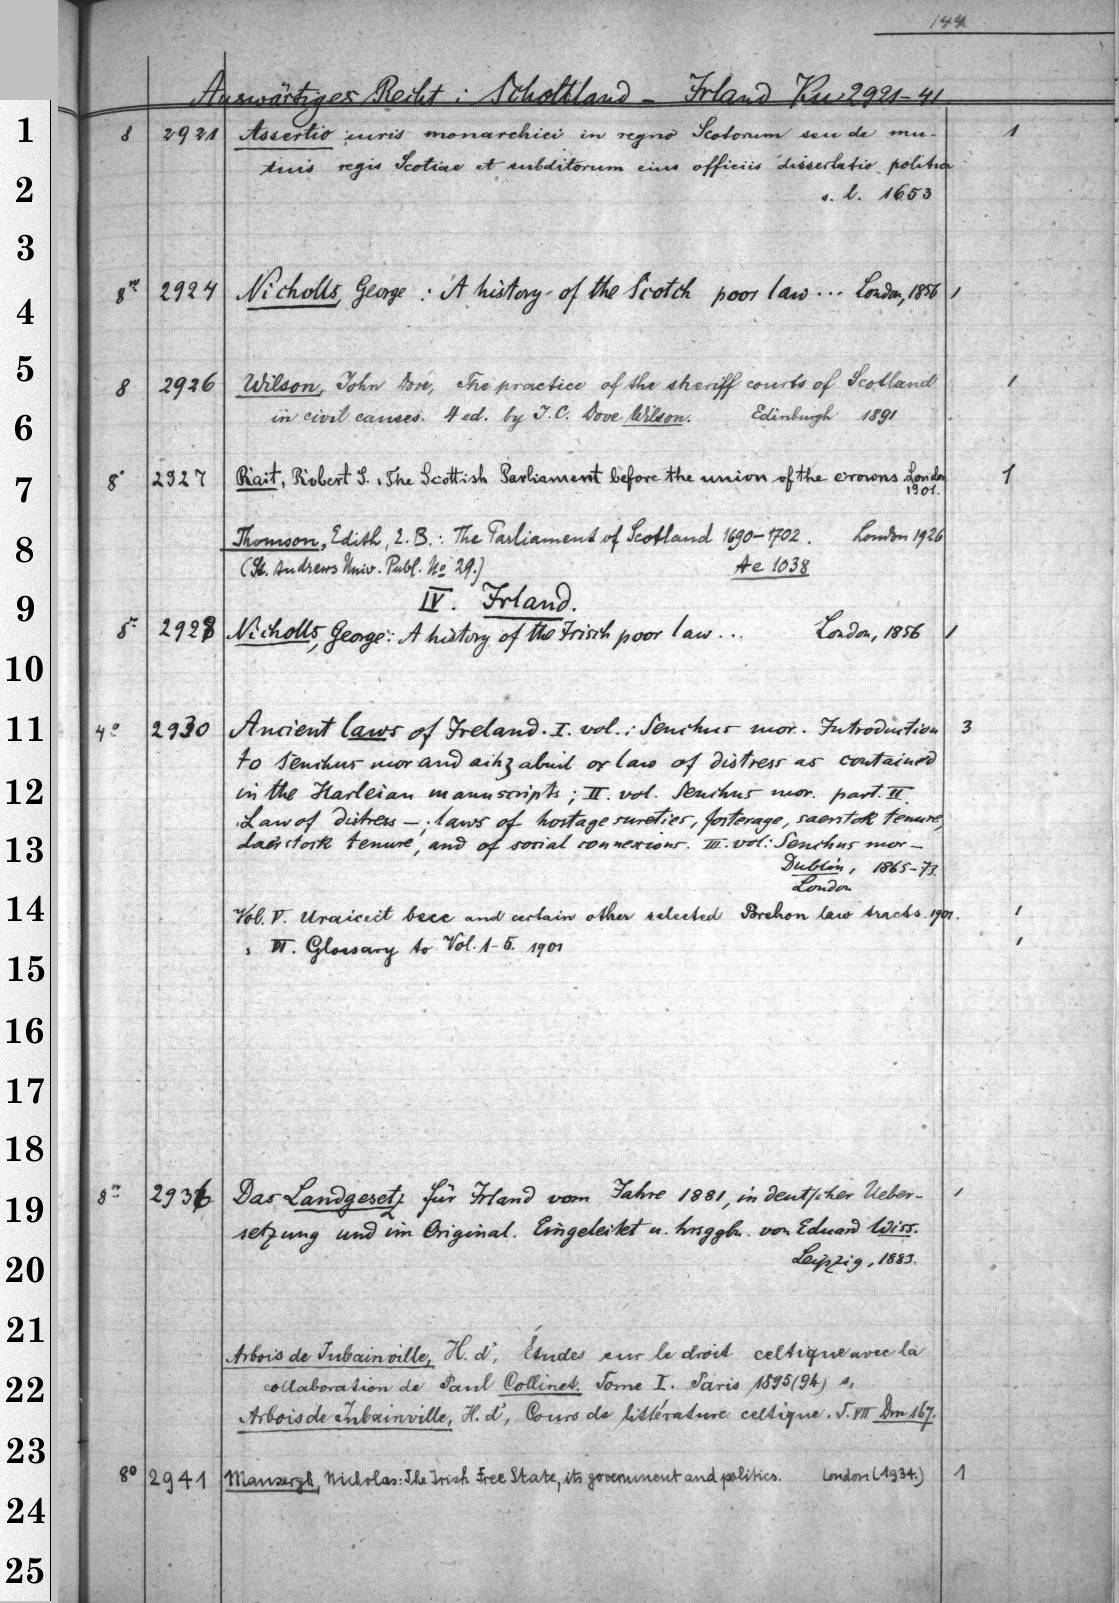 144
Auswärtiges Recht: Schottland – Irland Ku 2921–41
1
8 2921 Assertio iuris monarchici in regno Scotorum seu de mu- 1
tuis regis Scotiae et subditorum eius officiis dissertatio politica
2
s. l. 1653
3
8° 2924 Nicholls, George: A history of the Scotch poor law... London, 1856 1
4
5
8 2926 Wilson, John Dove, The practice of the sheriff courts of Scotland 1
in civil causes. 4 ed. by J. C. Dove Wilson. Edinburgh 1891
6
7
8° 2927 Rait, Robert S.: The Scottish Parliament before the union of the crowns. London 1
1901.
Thomson, Edith, E. B.: The Parliament of Scotland 1690–1702. London 1926
8
(St. Andrews Univ. Publ. No 29.) Ae 1038
9
IV. Irland.
8° 2928 Nicholls, George: A history of the Irisch poor law... London, 1856 1
10
11
4° 2930 Ancient laws of Ireland. I. vol.: Senchus mor. Introduction 3
to Senchus mor and aihz abuil or law of distress as contained
12
in the Harleian manuscripts; II. vol. Senchus mor. part. II.
Law of distress –; laws of hostage sureties, fosterage, saerstok tenure,
13
daerstock tenure, and of social connexions. III. vol: Senchus mor –
Dublin, 1865–73.
London
14
Vol. V. Uraicect becc and certain other selected Brehon law tracts. 1901. 1
" VI. Glossary to Vol. 1–5. 1901 1
15
16
17
18
19
8° 2936 Das Landgesetz für Irland vom Jahre 1881, in deutscher Ueber- 1
setzung und im Original. Eingeleitet u. hrsggbn. von Eduard Wiss.
20
Leipzig, 1883.
21
Arbois de Jubainville, H. d', Études sur le droit celtique avec la
22
collaboration de Paul Collinet. Tome I. Paris 1895(94) s.
Arbois de Jubainville, H. d', Cours de littérature celtique. T. VII Dm 167.
23
8° 2941 Mansergh, Nicholas: The Irish Free State, its government and politics. London (1934.) 1
24
25